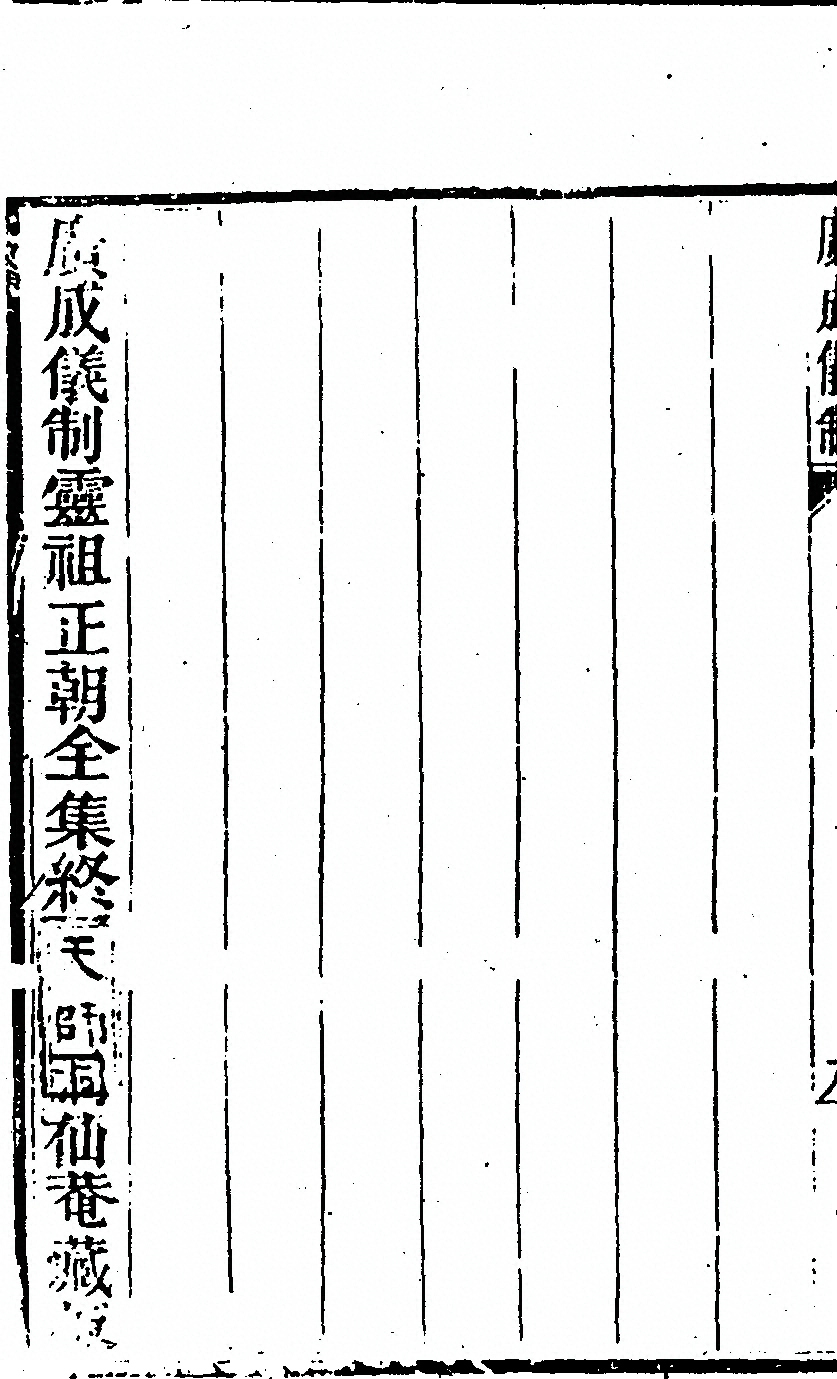 廣成儀制
廣成儀制靈祖正朝全集終
天師洞仙菴藏